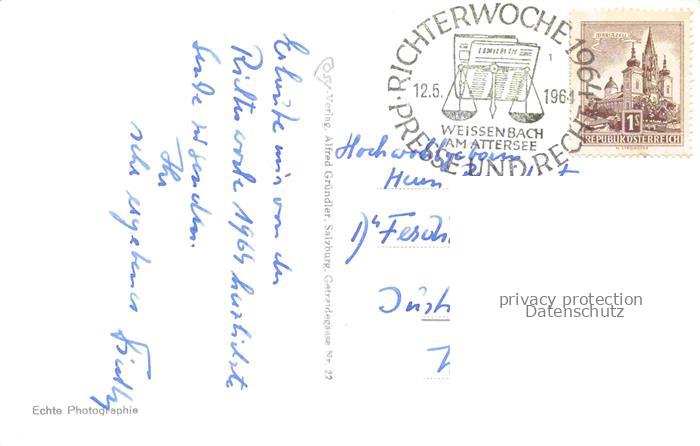 Erlaube mir von der
Richterwoche 1964 herzlichste
Grüße zu senden.
Ihr
sehr ergebener
Echte Photographie
Cosy-Verlag, Alfred Gründler, Salzburg, Getreidegasse Nr. 22
RICHTERWOCHE 1964
PRESSE UND RECHT
12.5. 1964
WEISSENBACH
AM ATTERSEE
MARIAZELL
1S
REPUBLIK ÖSTERREICH
Hochwohlgeboren
Herrn
Dr
privacy protection
Datenschutz